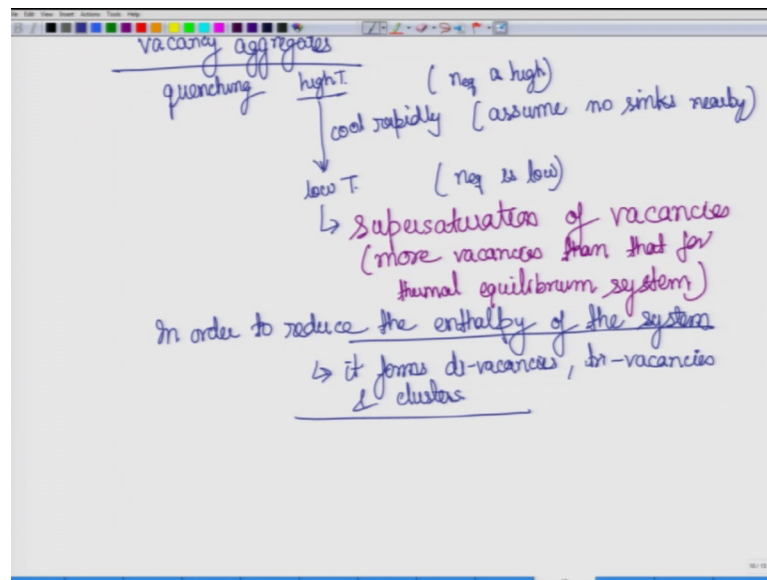 File Edit View Insert Actions Tools Help
vacancy aggregates
quenching high T. (neq is high)
cool rapidly (assume no sinks nearby)
low T. (neq is low)
↳ Supersaturation of vacancies
(more vacancies than that for
thermal equilibrium system)
In order to reduce the enthalpy of the system
↳ it forms di-vacancies, tri-vacancies
& clusters.